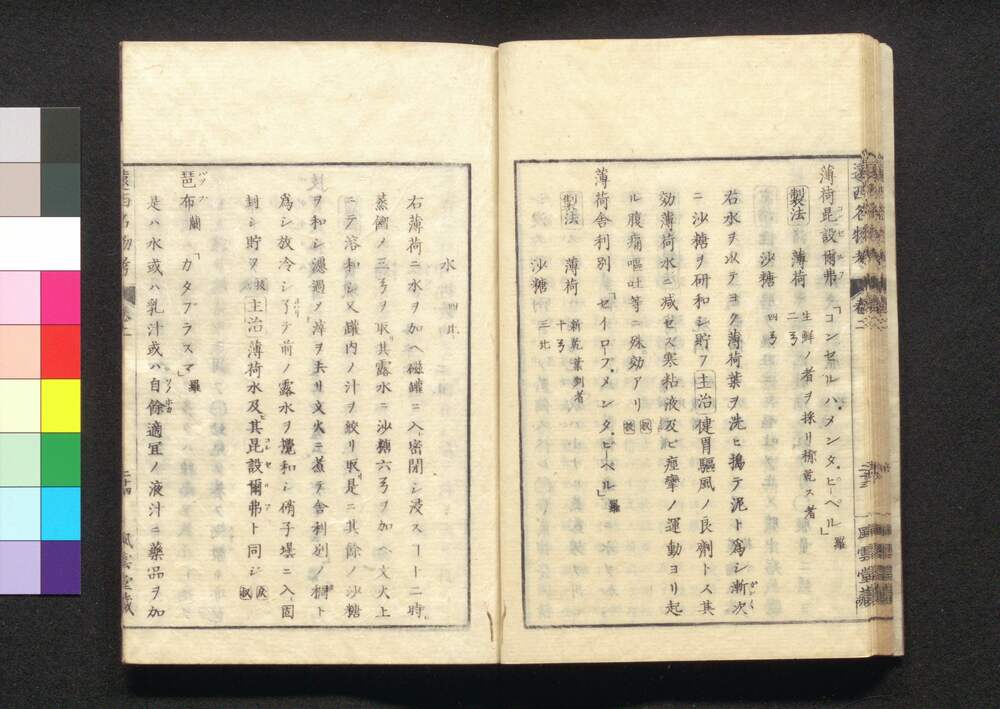 遠西名物考 卷二 二十三 風雲堂藏
薄荷昆設爾弗 「コンセルハ・メンタ・ピーペル」羅
製法 薄荷 生鮮ノ者ヲ採リ稍乾ス者 二ㄋ
沙糖 四ㄋ
右水ヲ以テヨク薄荷葉ヲ洗ヒ搗テ泥ト爲シ漸次
ニ沙糖ヲ研和シ貯フ 主治 健胃驅風ノ良劑トス其
効薄荷水ニ減セス寒粘液及ヒ痙攣ノ運動ヨリ起
ル腹痛嘔吐等ニ殊効アリ
薄荷舎利別 「セイロープ・メンタ・ピーペル」羅
製法 薄荷 新乾葉剉者 十ㄋ
沙糖 三比
水 四比
右薄荷ニ水ヲ加ヘ磁罐ニ入密閉シ浸スヿ十二時
蒸餾メ三ㄋヲ取其露水ニ沙糖六ㄋヲ加ヘ文火上
ニテ溶和シ又罐内ノ汁ヲ絞リ取是ニ其餘ノ沙糖
ヲ和シ濾過メ滓ヲ去リ文火ニ煮テ舎利別ノ稠ト
爲シ放冷シ了テ前ノ露水ヲ攪和シ硝子壜ニ入固
封シ貯ヲ 主治 薄荷水及其昆設爾弗ト同シ
琶布 蘭 「カタプラスマ」羅
是ハ水或ハ乳汁或ハ自餘適宜ノ液汁ニ藥品ヲ加
遠西名物考 卷二 二十四 風雲堂藏